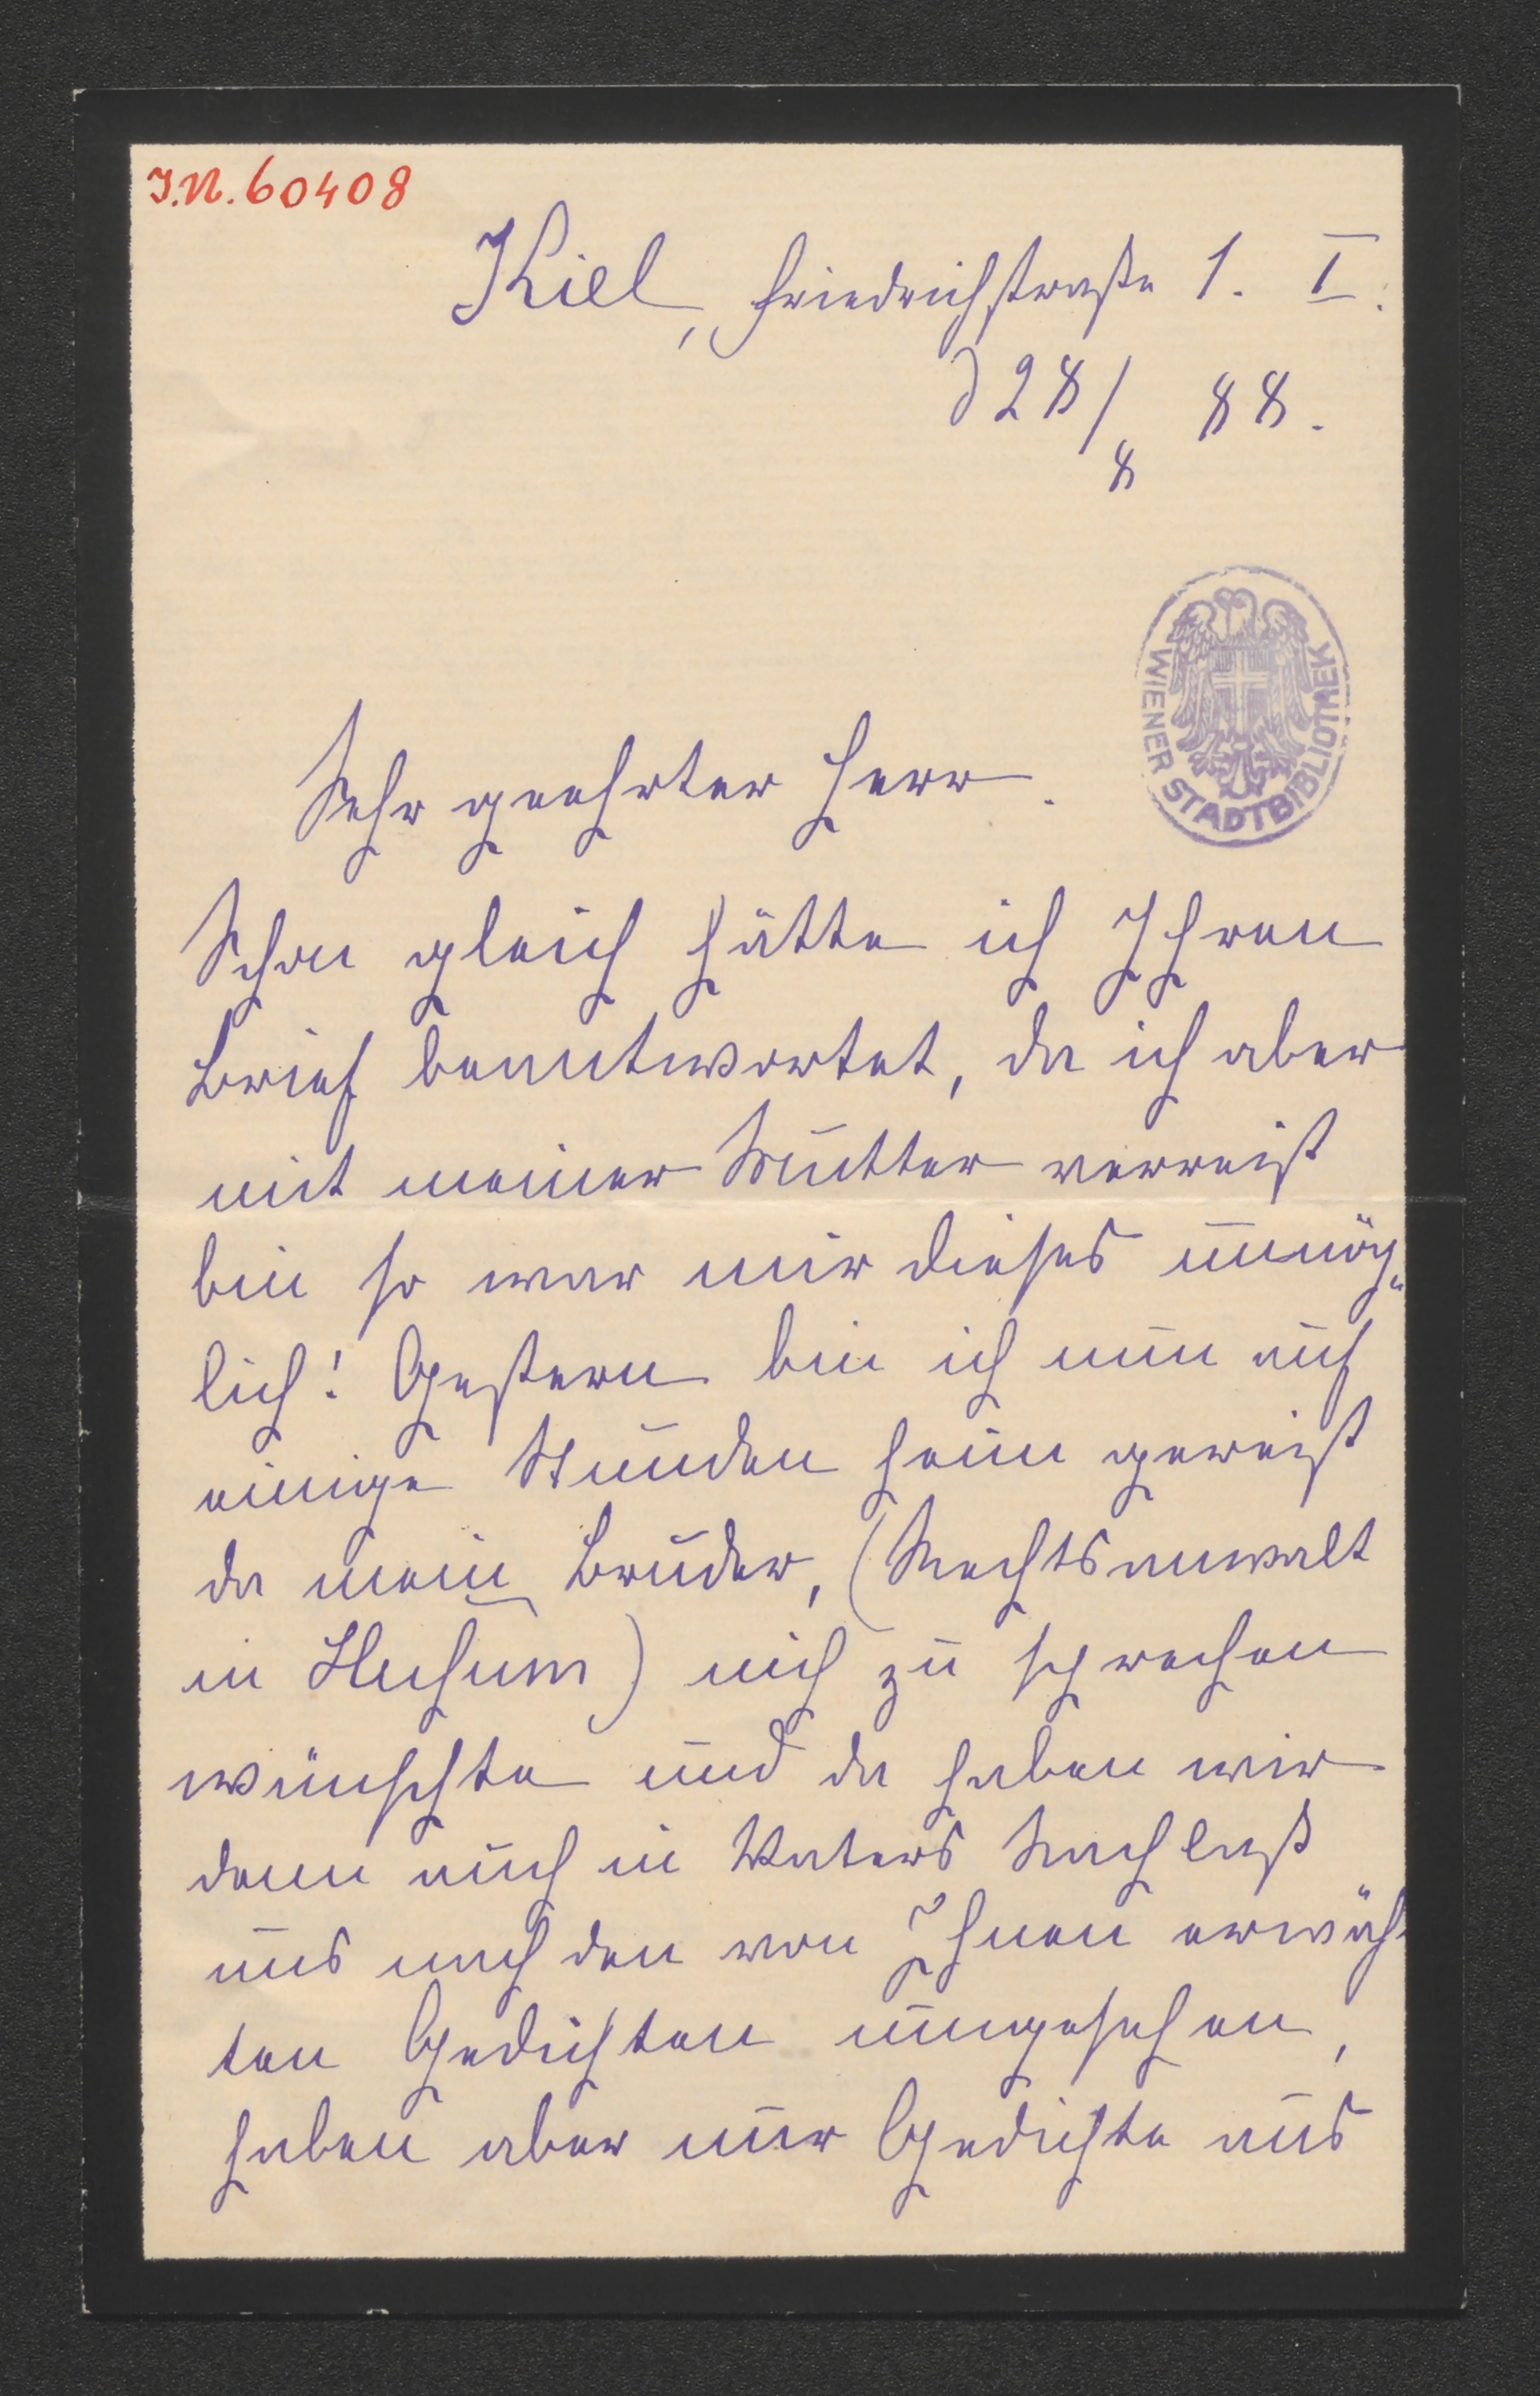 I.N. 60408
Kiel, Friedrichstraße 1. I.
d 28/8 88.
WIENER STADTBIBLIOTHEK
Sehr geehrter Herr.
Schon gleich hätte ich Ihren
Brief beantwortet, da ich aber
mit meiner Mutter verreist
bin so war mir dieses unmög„
lich! Gestern bin ich nun auf
einige Stunden heim gereist
da mein Bruder, (Rechtsanwalt
in Husum) mich zu sprechen
wünschte und da haben wir
denn auch in Vaters Nachlaß
uns nach den von Ihnen erwäh-
ten Gedichten umgesehen,
haben aber nur Gedichte aus